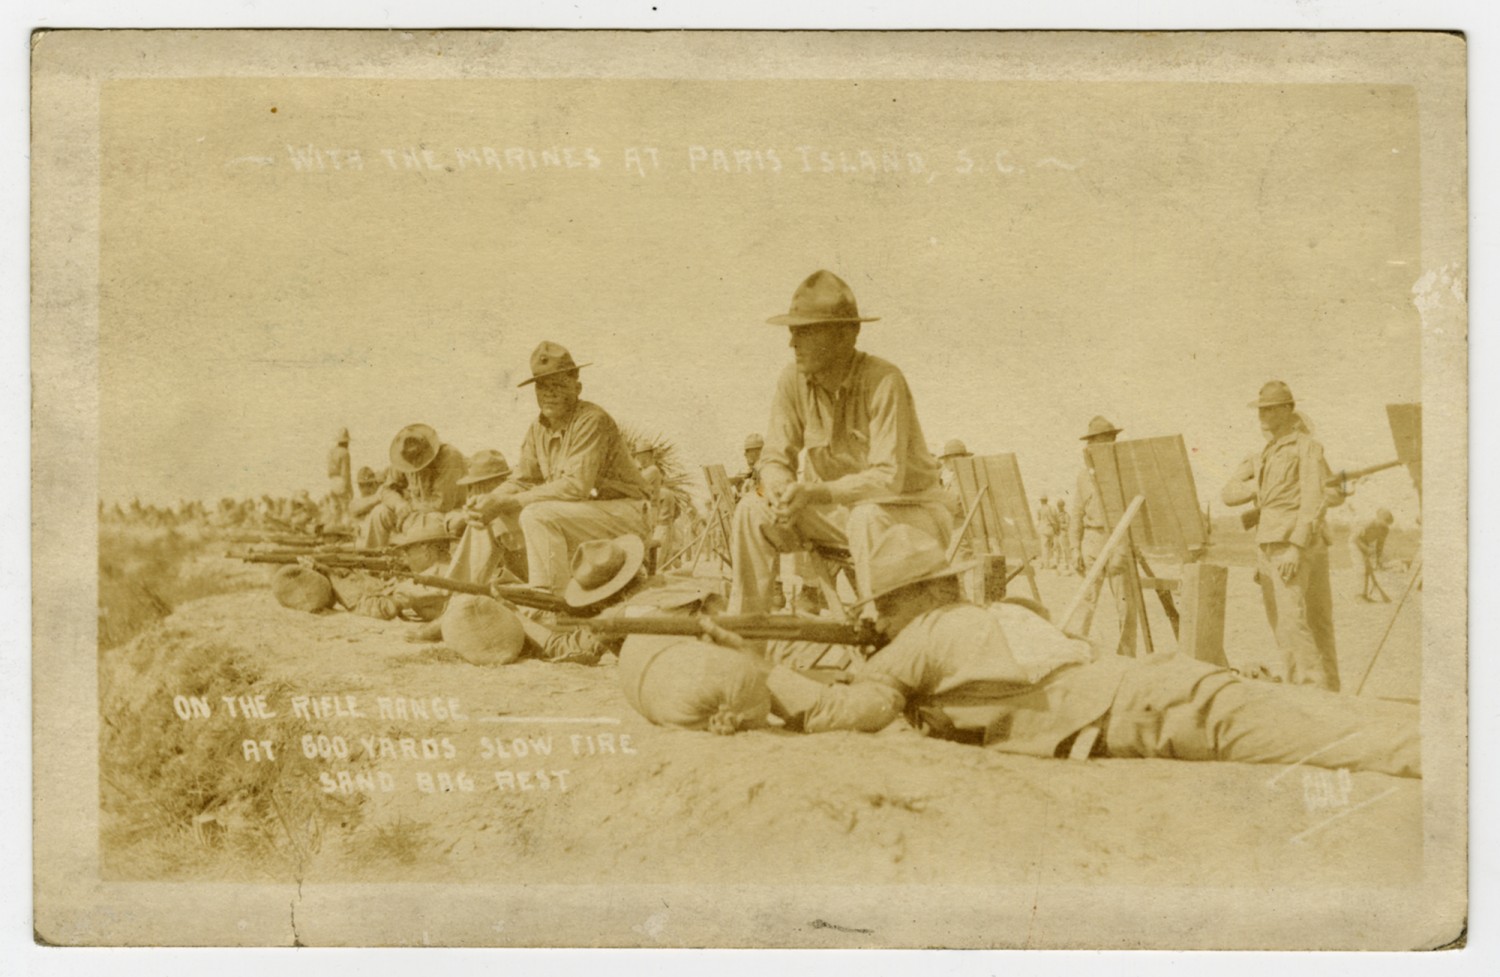 ~ WITH THE MARINES AT PARIS ISLAND, S. C. ~
ON THE RIFLE RANGE
AT 600 YARDS SLOW FIRE
SAND BAG REST